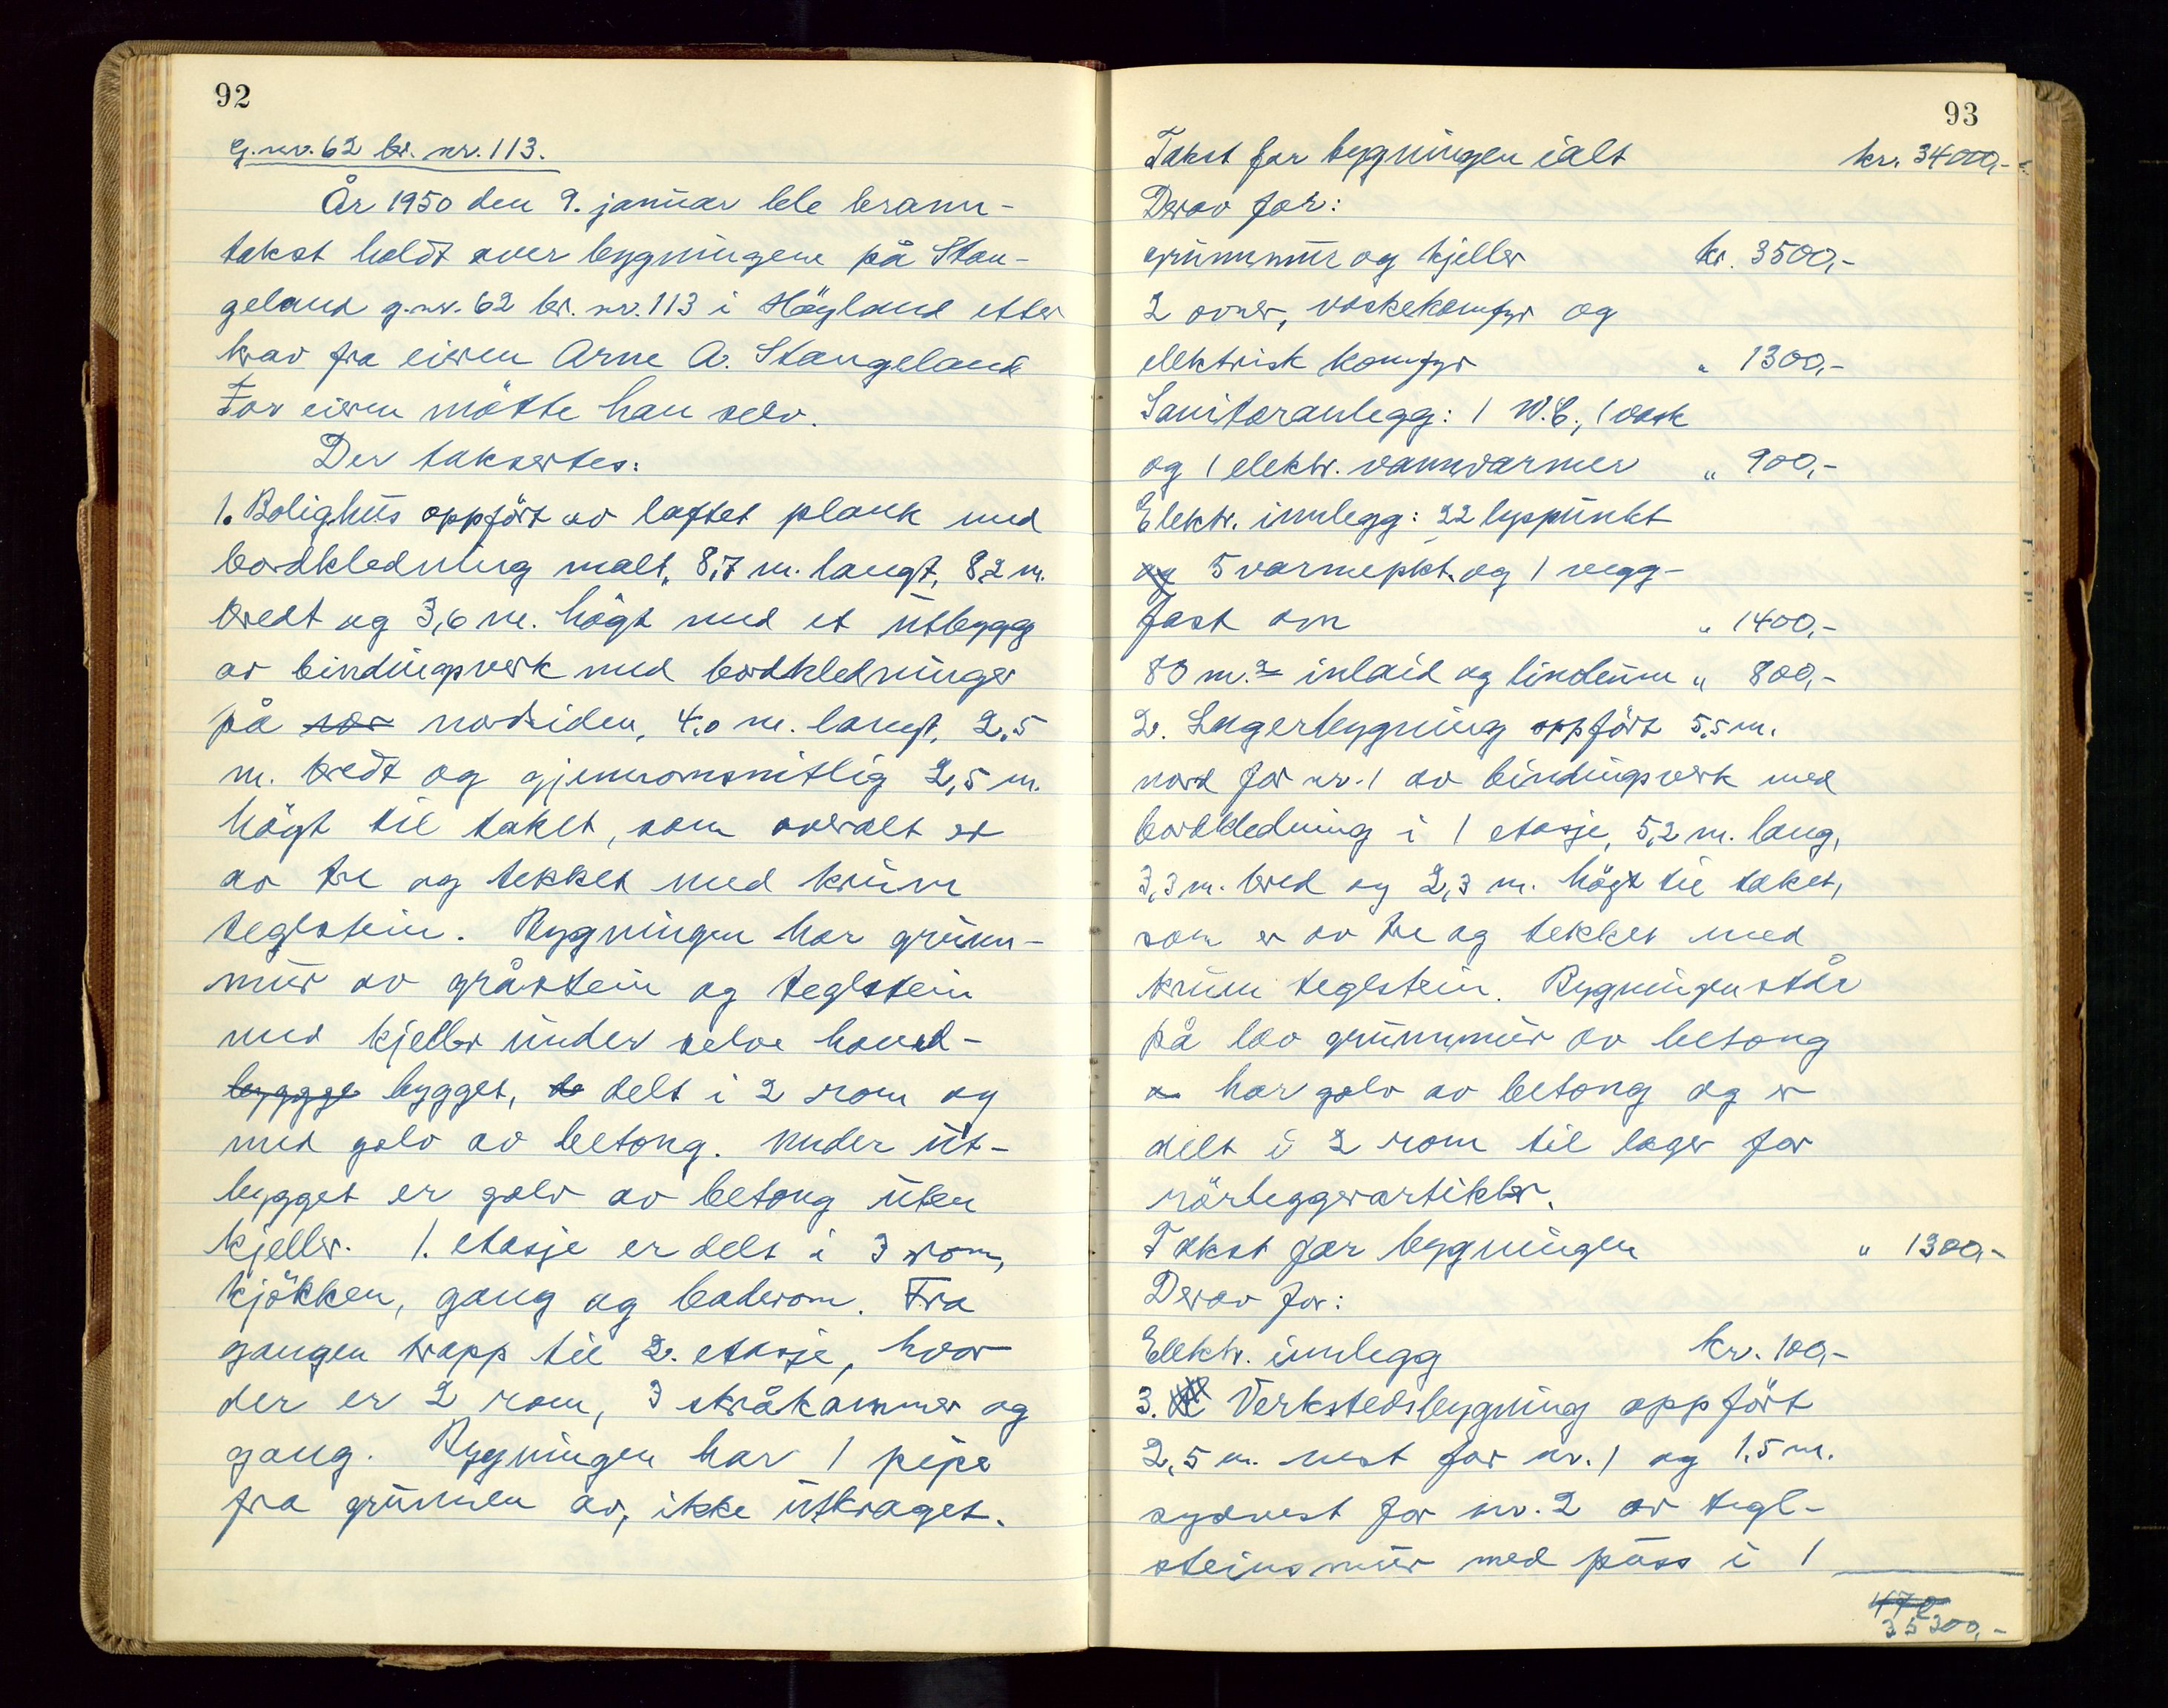 92
G.nr. 62 br. nr. 113.
År 1950 den 9. januar ble brann-
takst holdt over bygningene på Stan-
geland g.nr. 62 br. nr. 113 i Höyland etter
krav fra eieren Arne A. Stangeland
For eieren mötte han selv.
Der taksertes:
1. Bolighus oppfört av laftet plank med
bordkledning malt, 8,7 m. langt, 8,2 m.
bredt og 3,6 m. högt med et utbygg
av bindingsverk med bordkledninger
på sør nordsiden, 4,0 m. langt, 2,5
m. bredt og gjennomsnitlig 2,5 m.
högt til taket, som overalt er
av tre og tekket med krum
teglstein. Bygningen har grunn-
mur av gråstein og teglstein
med kjeller under selve hoved-
bygge bygget, de delt i 2 rom og
med golv av betong. Under ut-
bygget er golv av betong uten
kjeller. 1. etasje er delt i 3 rom,
kjökken, gang og baderom. Fra
gangen trapp til 2. etasje, hvor
der er 2 rom, 3 skråkammer og
gang. Bygningen har 1 pipe
fra grunnen av, ikke utkraget.
93
Takst for bygningen ialt kr. 34000,-
Derav for:
grunnmur og kjeller kr. 3500,-
2 ovner, vaskekomfyr og
elektrisk komfyr " 1300,-
Sanitæranlegg: 1 W.C., 1 vask
og 1 elektr. vannvarmer " 900,-
Elektr. innlegg: 22 lyspunkt
og 5 varmepkt. og 1 vegg-
fast ovn " 1400,-
80 m.2 inlaid og linoleum " 800,-
2. Lagerbygning oppfört 5,5 m.
nord for nr. 1 av bindingsverk med
bordkledning i 1 etasje, 5,2 m. lang,
3,3 m. bred og 2,3 m. högt til taket,
som er av tre og tekket med
krum teglstein. Bygningen står
på lav grunnmur av betong
har golv av betong og er
delt i 2 rom til lager for
rörleggerartikler.
Takst for bygningen " 1300,-
Derav for:
Elektr. innlegg kr. 100,-
3. Verkstedsbygning oppfört
2,5 m. vest for nr. 1 og 1,5 m.
sydvest for nr. 2 av tegl-
steinsmur med puss i 1
35300,-